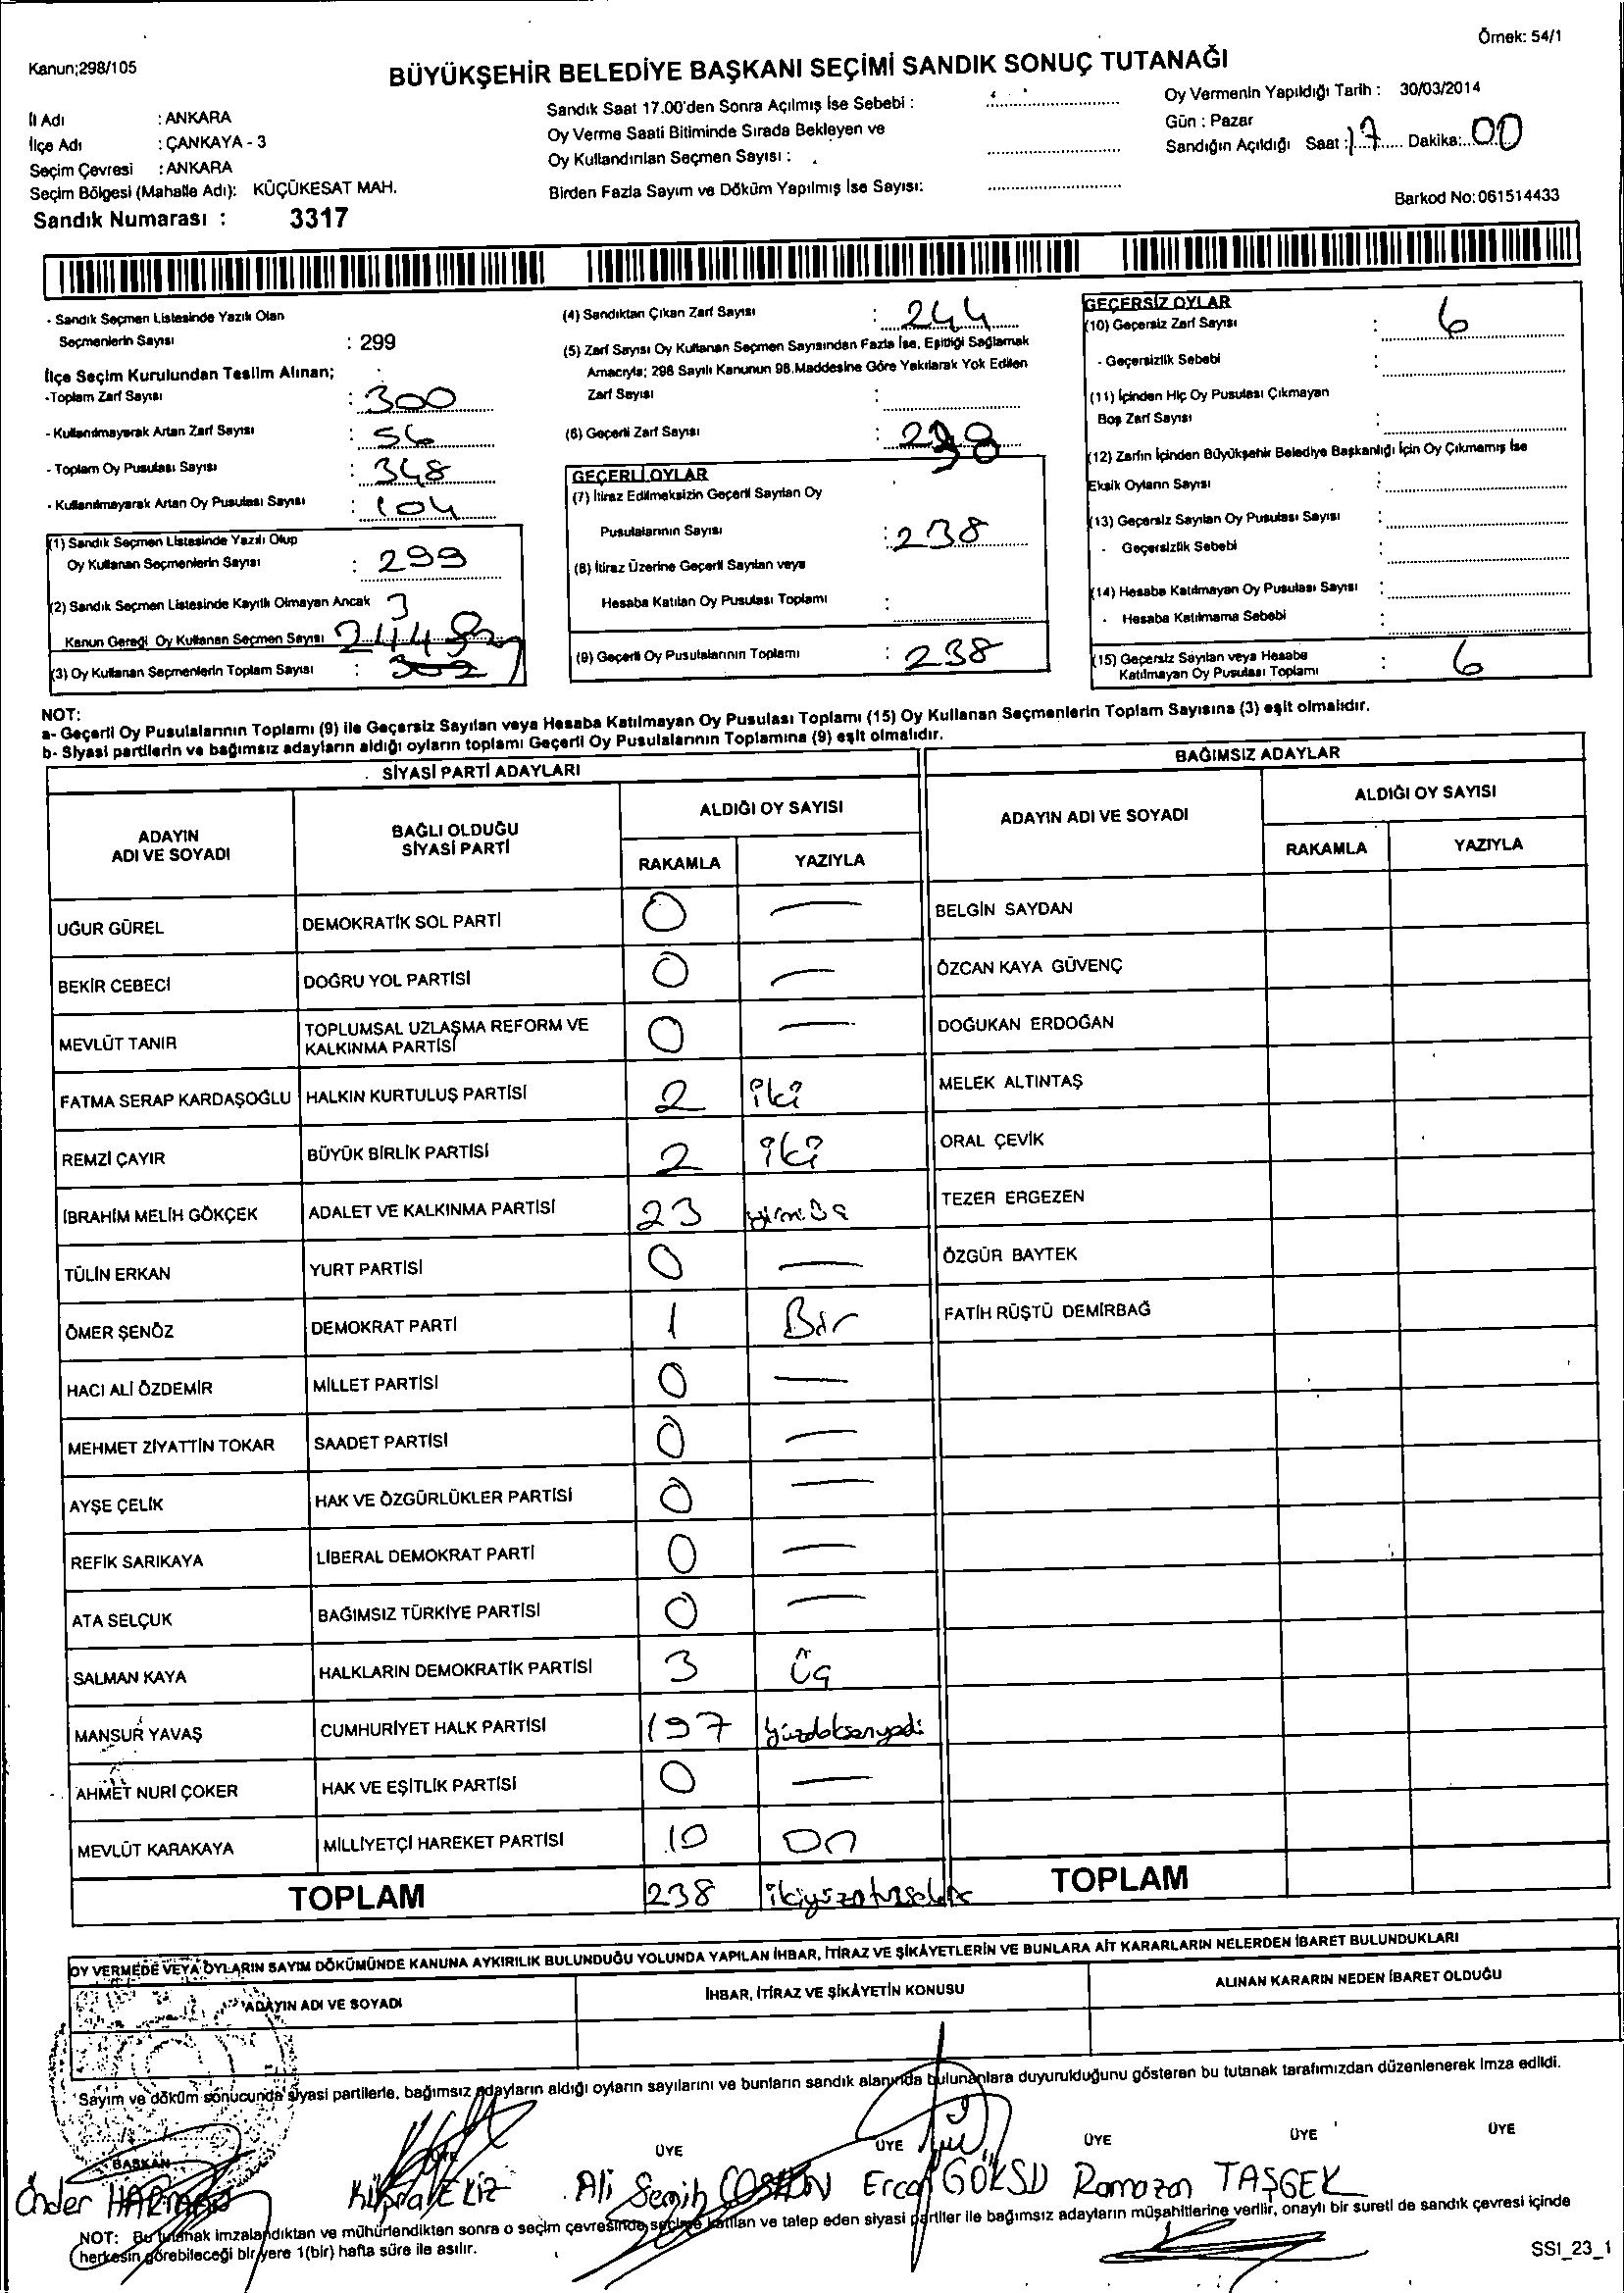 Örnek: 54/1
Kanun;298/105
BÜYÜKŞEHİR BELEDİYE BAŞKANI SEÇİMİ SANDIK SONUÇ TUTANAĞI
İl Adı : ANKARA
İlçe Adı : ÇANKAYA - 3
Seçim Çevresi : ANKARA
Seçim Bölgesi (Mahalle Adı): KÜÇÜKESAT MAH.
Sandık Numarası : 3317
Sandık Saat 17.00'den Sonra Açılmış İse Sebebi :
Oy Verme Saati Bitiminde Sırada Bekleyen ve
Oy Kullandırılan Seçmen Sayısı :
Birden Fazla Sayım ve Döküm Yapılmış İse Sayısı:
Oy Vermenin Yapıldığı Tarih : 30/03/2014
Gün : Pazar
Sandığın Açıldığı Saat : 17 Dakika: 00
Barkod No: 061514433
- Sandık Seçmen Listesinde Yazılı Olan
Seçmenlerin Sayısı : 299
İlçe Seçim Kurulundan Teslim Alınan;
-Toplam Zarf Sayısı : 300
- Kullanılmayarak Artan Zarf Sayısı : 56
- Toplam Oy Pusulası Sayısı : 348
- Kullanılmayarak Artan Oy Pusulası Sayısı : 104
(1) Sandık Seçmen Listesinde Yazılı Olup
Oy Kullanan Seçmenlerin Sayısı : 299
(2) Sandık Seçmen Listesinde Kayıtlı Olmayan Ancak 3
Kanun Gereği Oy Kullanan Seçmen Sayısı 244
(3) Oy Kullanan Seçmenlerin Toplam Sayısı : 302
(4) Sandıktan Çıkan Zarf Sayısı : 244
(5) Zarf Sayısı Oy Kullanan Seçmen Sayısından Fazla İse, Eşitliği Sağlamak
Amacıyla; 298 Sayılı Kanunun 98.Maddesine Göre Yakılarak Yok Edilen
Zarf Sayısı :
(6) Geçerli Zarf Sayısı : 238
GEÇERLİ OYLAR
(7) İtiraz Edilmeksizin Geçerli Sayılan Oy
Pusulalarının Sayısı : 238
(8) İtiraz Üzerine Geçerli Sayılan veya
Hesaba Katılan Oy Pusulası Toplamı :
(9) Geçerli Oy Pusulalarının Toplamı : 238
GEÇERSİZ OYLAR
(10) Geçersiz Zarf Sayısı : 6
- Geçersizlik Sebebi :
(11) İçinden Hiç Oy Pusulası Çıkmayan
Boş Zarf Sayısı :
(12) Zarfın İçinden Büyükşehir Belediye Başkanlığı İçin Oy Çıkmamış İse
Eksik Oyların Sayısı :
(13) Geçersiz Sayılan Oy Pusulası Sayısı :
- Geçersizlik Sebebi :
(14) Hesaba Katılmayan Oy Pusulası Sayısı :
- Hesaba Katılmama Sebebi :
(15) Geçersiz Sayılan veya Hesaba
Katılmayan Oy Pusulası Toplamı : 6
NOT:
a- Geçerli Oy Pusulalarının Toplamı (9) ile Geçersiz Sayılan veya Hesaba Katılmayan Oy Pusulası Toplamı (15) Oy Kullanan Seçmenlerin Toplam Sayısına (3) eşit olmalıdır.
b- Siyasi partilerin ve bağımsız adayların aldığı oyların toplamı Geçerli Oy Pusulalarının Toplamına (9) eşit olmalıdır.
SİYASİ PARTİ ADAYLARI
ADAYIN ADI VE SOYADI
BAĞLI OLDUĞU SİYASİ PARTİ
ALDIĞI OY SAYISI
RAKAMLA YAZIYLA
UĞUR GÜREL DEMOKRATİK SOL PARTİ 0 —
BEKİR CEBECİ DOĞRU YOL PARTİSİ 0 —
MEVLÜT TANIR TOPLUMSAL UZLAŞMA REFORM VE KALKINMA PARTİSİ 0 —
FATMA SERAP KARDAŞOĞLU HALKIN KURTULUŞ PARTİSİ 2 iki
REMZİ ÇAYIR BÜYÜK BİRLİK PARTİSİ 2 iki
İBRAHİM MELİH GÖKÇEK ADALET VE KALKINMA PARTİSİ 23
TÜLİN ERKAN YURT PARTİSİ 0 —
ÖMER ŞENÖZ DEMOKRAT PARTİ 1 Bir
HACI ALİ ÖZDEMİR MİLLET PARTİSİ 0 —
MEHMET ZİYATTİN TOKAR SAADET PARTİSİ 0 —
AYŞE ÇELİK HAK VE ÖZGÜRLÜKLER PARTİSİ 0 —
REFİK SARIKAYA LİBERAL DEMOKRAT PARTİ 0 —
ATA SELÇUK BAĞIMSIZ TÜRKİYE PARTİSİ 0 —
SALMAN KAYA HALKLARIN DEMOKRATİK PARTİSİ 3 Üç
MANSUR YAVAŞ CUMHURİYET HALK PARTİSİ 197 yüzdoksanyedi
AHMET NURİ ÇOKER HAK VE EŞİTLİK PARTİSİ 0 —
MEVLÜT KARAKAYA MİLLİYETÇİ HAREKET PARTİSİ 10 On
TOPLAM 238 ikiyüzotuzsekiz
BAĞIMSIZ ADAYLAR
ADAYIN ADI VE SOYADI
ALDIĞI OY SAYISI
RAKAMLA YAZIYLA
BELGİN SAYDAN
ÖZCAN KAYA GÜVENÇ
DOĞUKAN ERDOĞAN
MELEK ALTINTAŞ
ORAL ÇEVİK
TEZER ERGEZEN
ÖZGÜR BAYTEK
FATİH RÜŞTÜ DEMİRBAĞ
TOPLAM
OY VERMEDE VEYA OYLARIN SAYIM DÖKÜMÜNDE KANUNA AYKIRILIK BULUNDUĞU YOLUNDA YAPILAN İHBAR, İTİRAZ VE ŞİKÂYETLERİN VE BUNLARA AİT KARARLARIN NELERDEN İBARET BULUNDUKLARI
ADAYIN ADI VE SOYADI
İHBAR, İTİRAZ VE ŞİKÂYETİN KONUSU
ALINAN KARARIN NEDEN İBARET OLDUĞU
Sayım ve döküm sonucunda siyasi partilerle, bağımsız adayların aldığı oyların sayılarını ve bunların sandık alanında bulunanlara duyurulduğunu gösteren bu tutanak tarafımızdan düzenlenerek imza edildi.
BAŞKAN ÜYE ÜYE ÜYE ÜYE ÜYE ÜYE
Önder Kübra EKİZ Ali Semih COŞKUN Ercan GÖKSU Ramazan TAŞGEK
NOT: Bu tutanak imzalandıktan ve mühürlendikten sonra o seçim çevresinde seçime katılan ve talep eden siyasi partiler ile bağımsız adayların müşahitlerine verilir, onaylı bir sureti de sandık çevresi içinde
herkesin görebileceği bir yere 1(bir) hafta süre ile asılır.
SSI_23_1